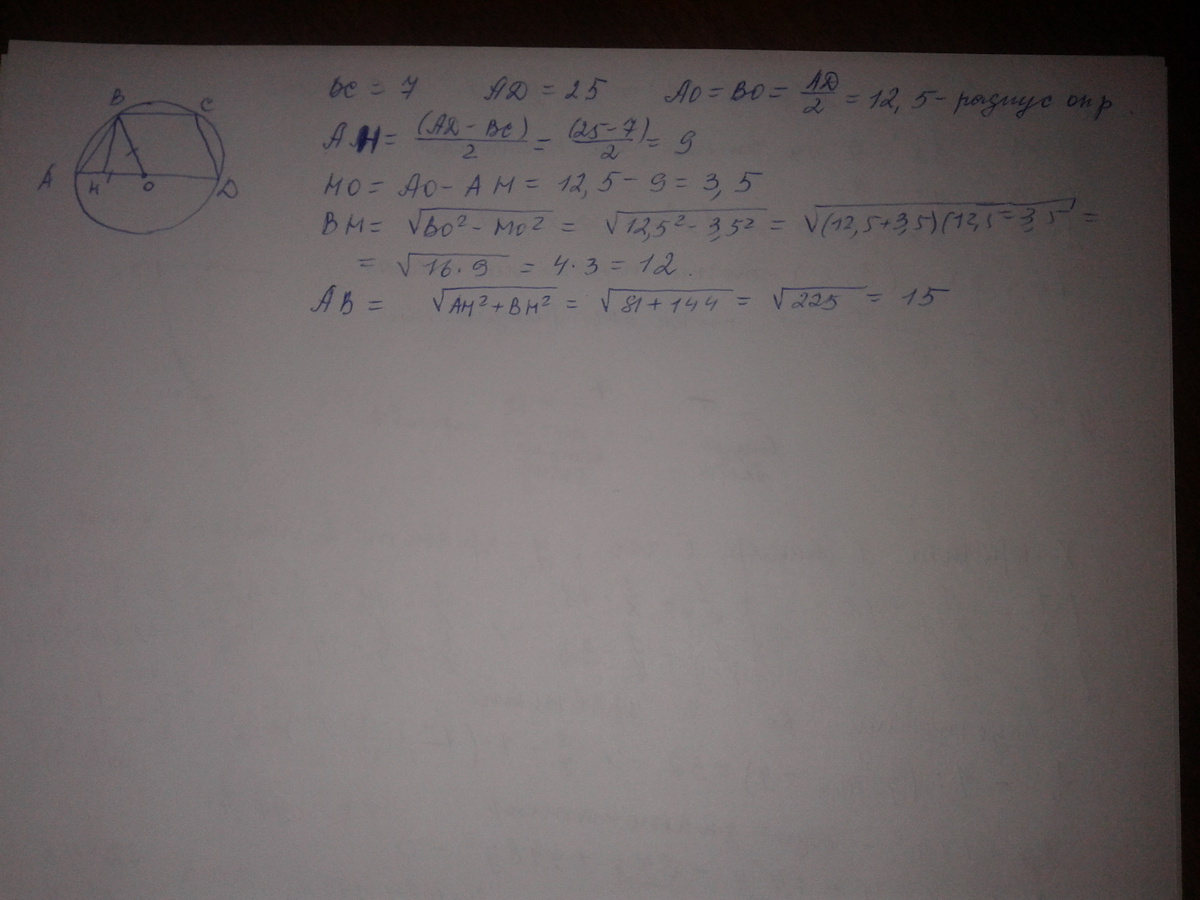 B C
A H O D
BC = 7 AD = 25 AO = BO = AD/2 = 12,5 - радиус опр.
AH = (AD - BC)/2 = (25-7)/2 = 9
HO = AO - AH = 12,5 - 9 = 3,5
BH = √(BO² - HO²) = √(12,5² - 3,5²) = √((12,5+3,5)(12,5-3,5) =
= √(16·9) = 4·3 = 12.
AB = √(AH² + BH²) = √(81 + 144) = √225 = 15